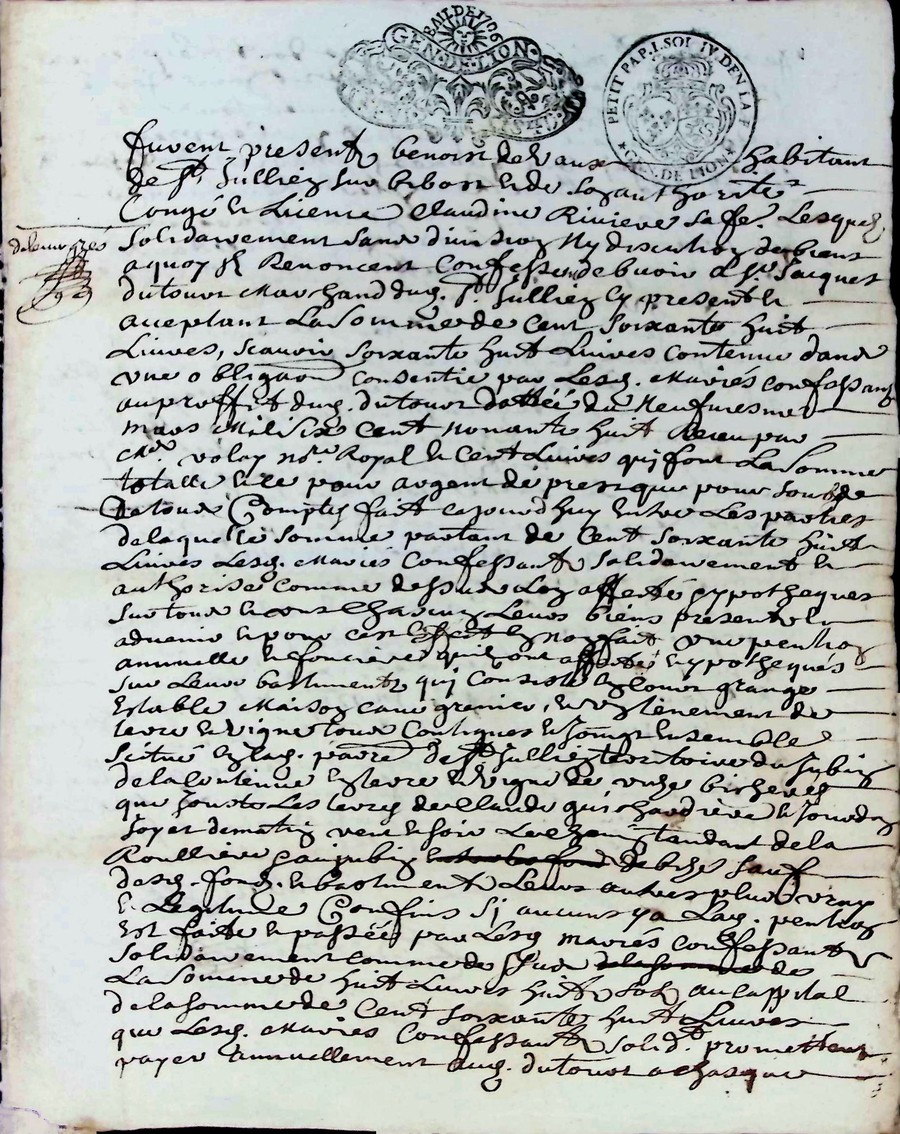 BAIL DE 1706
GEN. DE LION
PETIT PAP. 1. SOL IV. DEN LA F
GEN. DE LION
furent present benoist Habitant
de St Jullien sur bibost et de
Congé et Licence Claudine Riviere sa fe. Lesquelz
Solidairement sans division ny discution de biens
a quoy Renoncent Confessent debuoir a Sr Jacques
dutour Marchand dud. St Jullien cy present et
acceptant La Somme de Cent soixante huit
Liures, scauoir soixante huit Liures contenue dans
vne obligaon consentie par Lesd. Mariés confessans
au proffit dud. dutour dattée du Neufuiesme
mars Mil Six Cent Nonante huit Receu par
Me. volay nore. Royal et Cent Liures quj font La Somme
totalle pour argent de prest que pour
de tous Comptes fait ce jourdhuy entre Les parties
de laquelle somme partant de Cent soixante huit
Liures Lesd. Mariés Confessants solidairement et
authorisé comme dessus ont affecté hypothequés
sur tous et vns Chascung Leurs biens present et
aduenir et pour cest effect en ont fait vne pention
annuelle et fonciere quilz ont affectés et ypothequés
sur Leurs bastiments quj Consiste en cour grange
Estable Maison caue grenier, et vn tenement de
terre et vigne tous Contigues et Joingt Ensemble
scitué en lad. parre. de St Jullien territoire du
de la contenue en terre et vigne de vnze bicherées
que Jouste Les terres de Claude et
Joyet de matin vent et soir Le chemin tendant de la
Roulliere a de bize sauf
desd. fond. et bastiments Leurs autres plus vrays
et Legitime Confins Si aucuns y a Lad. pention
Est faite et passée par Lesd mariés confessants
solidairement comme dessus de
La Somme de huit Liures huit sols au cappital
de la somme de Cent soixante huit Liures
que Lesd. Mariés Confessants solid.t promettent
payer Annuellement aud. dutour a chasque